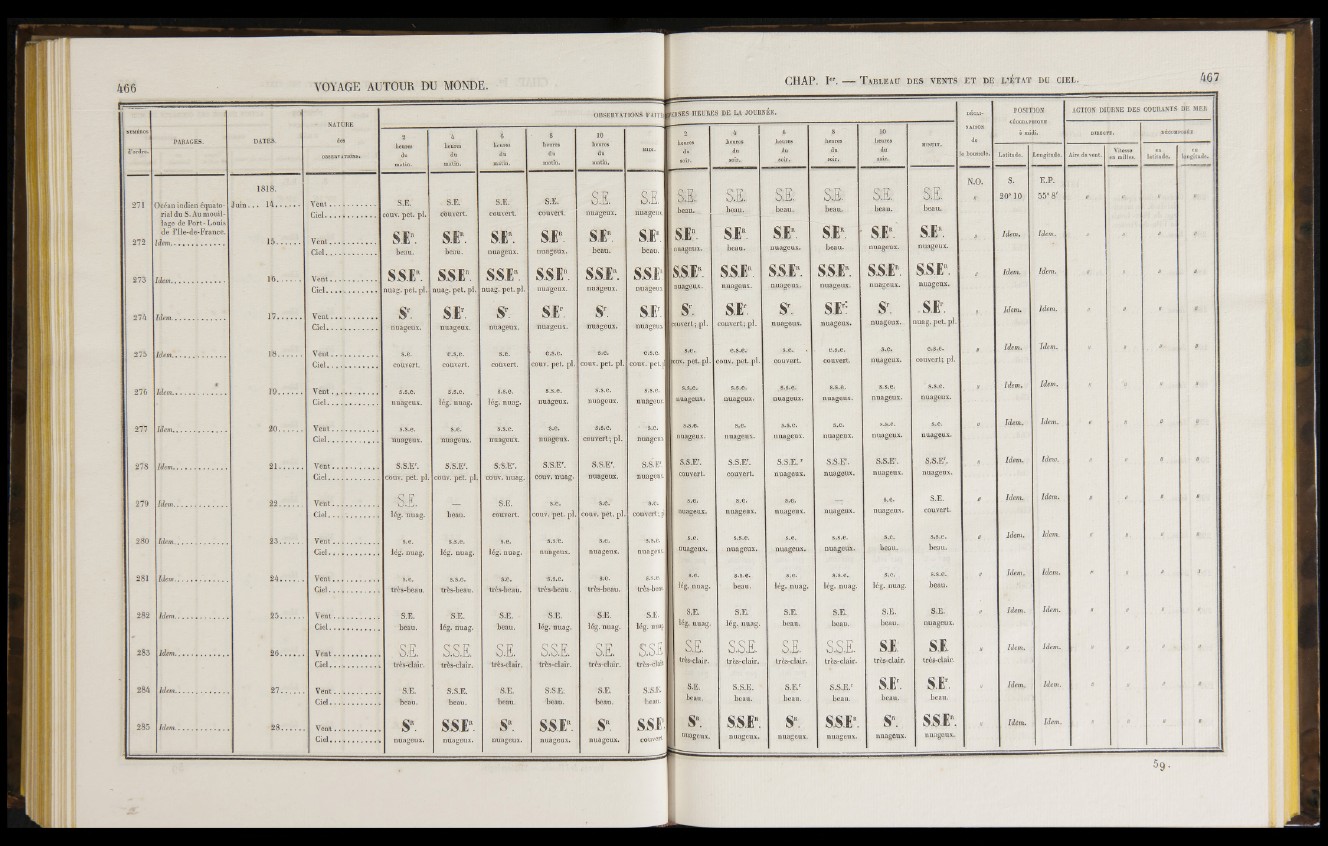 466
VOYAGE AUTOUR DU MONDE.
CHAP. Ier. — TABLEAU DES VENTS ET DE L'ÉTAT DU CIEL.
467
NUMÉROS d'ordre.
PARAGES.
DATES.
NATURE des OBSERVATIONS.
OBSERVATIONS
HEURES DE LA JOURNÉE.
2 heures du matin.
4 heures du matin.
6 heures du matin.
8 heures du matin.
10 heures du matin.
MIDI.
2 heures du soir.
4 heures du soir.
6 heures du soir.
8 heures du soir.
10 heures du soir.
MINUIT.
de la boussole.
POSITION GÉOGRAPHIQUE à midi.
Latitude.
Longitude.
ACTION DIURNE DES COURANTS DE MER
DIRECTE.
Aire de vent.
Vitesse en milles.
en latitude.
en longitude.
1818.
N.O. S. E.P.
271 Océan indien équatorial du S. Au mouillage de Port-Louis de l'Ile-de-France. Juin... 14
Vent S.E. S.E. S.E. S.E. S.E. S.E. S.E. S.E. S.E. S.E. S.E. S.E. 20° 10 55° 8'
Ciel couv. pet. pl. couvert. couvert. couvert. nuageux. nuageux beau. beau. beau. beau. beau. beau.
272 Idem. 15
Vent S.En. S.En. S.En. S.En. S.En. S.En. S.En. S.En. S.En. S.En. S.En. S.En. Idem. Idem.
Ciel beau. beau. nuageux. nuageux. beau. beau. nuageux. beau. nuageux. beau. nuageux. nuageux.
273 Idem. 16
Vent S.S.En. S.S.En. S.S.En. S.S.En. S.S.En. S.S.E S.S.En. S.S.En. S.S.En. S.S.En. S.S.En. S.S.En. Idem. Idem.
Ciel nuag. pet. pl. nuag. pet. pl. nuag. pet. pl. nuageux. nuageux. nuageux nuageux. nuageux. nuageux. nuageux. nuageux. nuageux.
274 Idem. 17
Vent Sr. S.Er. Sr. S.Er Sr. S.Er. Sr. S.Er. Sr. S.Er. Sr. S.Er. Idem. Idem.
Ciel nuageux. nuageux. nuageux. nuageux. nuageux. nuageux couvert; pl. couvert; pl. nuageux. nuageux. nuageux. nuag. pet. pl.
275 Idem. 18
Vent s.e. e.s.e. s.e. e.s.e. s.e. e.s.e. s.e. e.s.e. s.e. e.s.e. s.e. e.s.e. Idem. Idem.
Ciel couvert. couvert. couvert. couv. pet. pl. couv. pet. pl. couv. pet. couv. pet. pl. couv. pet. pl. couvert. couvert. nuageux. couvert; pl.
276 Idem. 19
Vent s.s.e. s.s.e. s.s.e. s.s.e. s.s.e. s.s.e. s.s.e. s.s.e. s.s.e. s.s.e. s.s.e. s.s.e. Idem. Idem.
Ciel nuageux. lég. nuag. lég. nuag. nuageux. nuageux. nuageux nuageux. nuageux. nuageux. nuageux. nuageux. nuageux.
277 Idem. 20
Vent s.s.e. s.e. s.s.e. s.e. s.s.e. s.e. s.s.e. s.e. s.s.e. s.e. s.s.e. s.e. Idem. Idem.
Ciel nuageux. nuageux. nuageux. nuageux. couvert; pl. nuageux nuageux. nuageux. nuageux. nuageux. nuageux. nuageux.
278 Idem. 21
Vent S.S.Er. S.S.Er. S.S.Er. S.S.Er. S.S.Er. S.S.Er S.S.Er. S.S.Er. S.S.E.r S.S.Er. S.S.Er. S.S.Er. Idem. Idem.
Ciel couv. pet. pl. couv. pet. pl. couv. nuag. couv. nuag. nuageux. nuageux. couvert. couvert. nuageux. nuageux. nuageux. nuageux.
279 Idem. 22
Vent S.E. — S.E. s.e. s.e. s.e. s.e. s.e. s.e. — s.e. S.E. Idem. Idem.
Ciel lég. nuag. beau. couvert. couv. pet. pl. couv. pet. pl. couvert; nuageux. nuageux. nuageux. nuageux. nuageux. couvert.
280 Idem. 23
Vent s.e. s.s.e. s.e. s.s.e. s.e. s.s.e. s.e. s.s.e. s.e. s.s.e. s.e. s.s.e. Idem. Idem.
Ciel lég. nuag. lég. nuag. lég. nuag. nuageux. nuageux. nuageux nuageux. nuageux. nuageux. nuageux. beau. beau.
281 Idem. 24
Vent s.e. s.s.e. s.e. s.s.e. s.e. s.s.e. s.e. s.s.e. s.e. s.s.e. s.e. s.s.e. Idem. Idem.
Ciel très-beau. très-beau. très-beau. très-beau. très-beau. très-beau lég. nuag. beau. lég. nuag. lég. nuag. lég. nuag. beau.
282 Idem. 25
Vent S.E. S.E. S.E. S.E. S.E. S.E. S.E. S.E. S.E. S.E. S.E. S.E. Idem. Idem.
Ciel beau. lég. nuag. beau. lég. nuag. lég. nuag. lég. nuag lég. nuag. lég. nuag. beau. beau. beau. nuageux.
283 Idem. 26
Vent S.E. S.S.E. S.E. S.S.E. S.E. S.S.E S.E. S.S.E. S.E. S.S.E. S.E. S.E. Idem. Idem.
Ciel très-clair. très-clair. très-clair. très-clair. très-clair. très-clair très-clair. très-clair. très-clair. très-clair. très-clair. très-clair.
284 Idem. 27
Vent S.E. S.S.E. S.E. S.S.E. S.E. S.S.E. S.E. S.S.E. S.Er S.S.E.r S.Er. S.Er. Idem. Idem.
Ciel beau. beau. beau. beau. beau. beau. beau. beau. beau. beau. beau. beau.
285 Idem. 28
Vent Sn. S.S.En. Sn. S.S.En. Sn. S.S.E Sn. S.S.En. Sn. S.S.En. Sn. S.S.En. Idem. Idem.
Ciel nuageux. nuageux. nuageux. nuageux. nuageux. couvert nuageux. nuageux. nuageux. nuageux. nuageux. nuageux.
59.